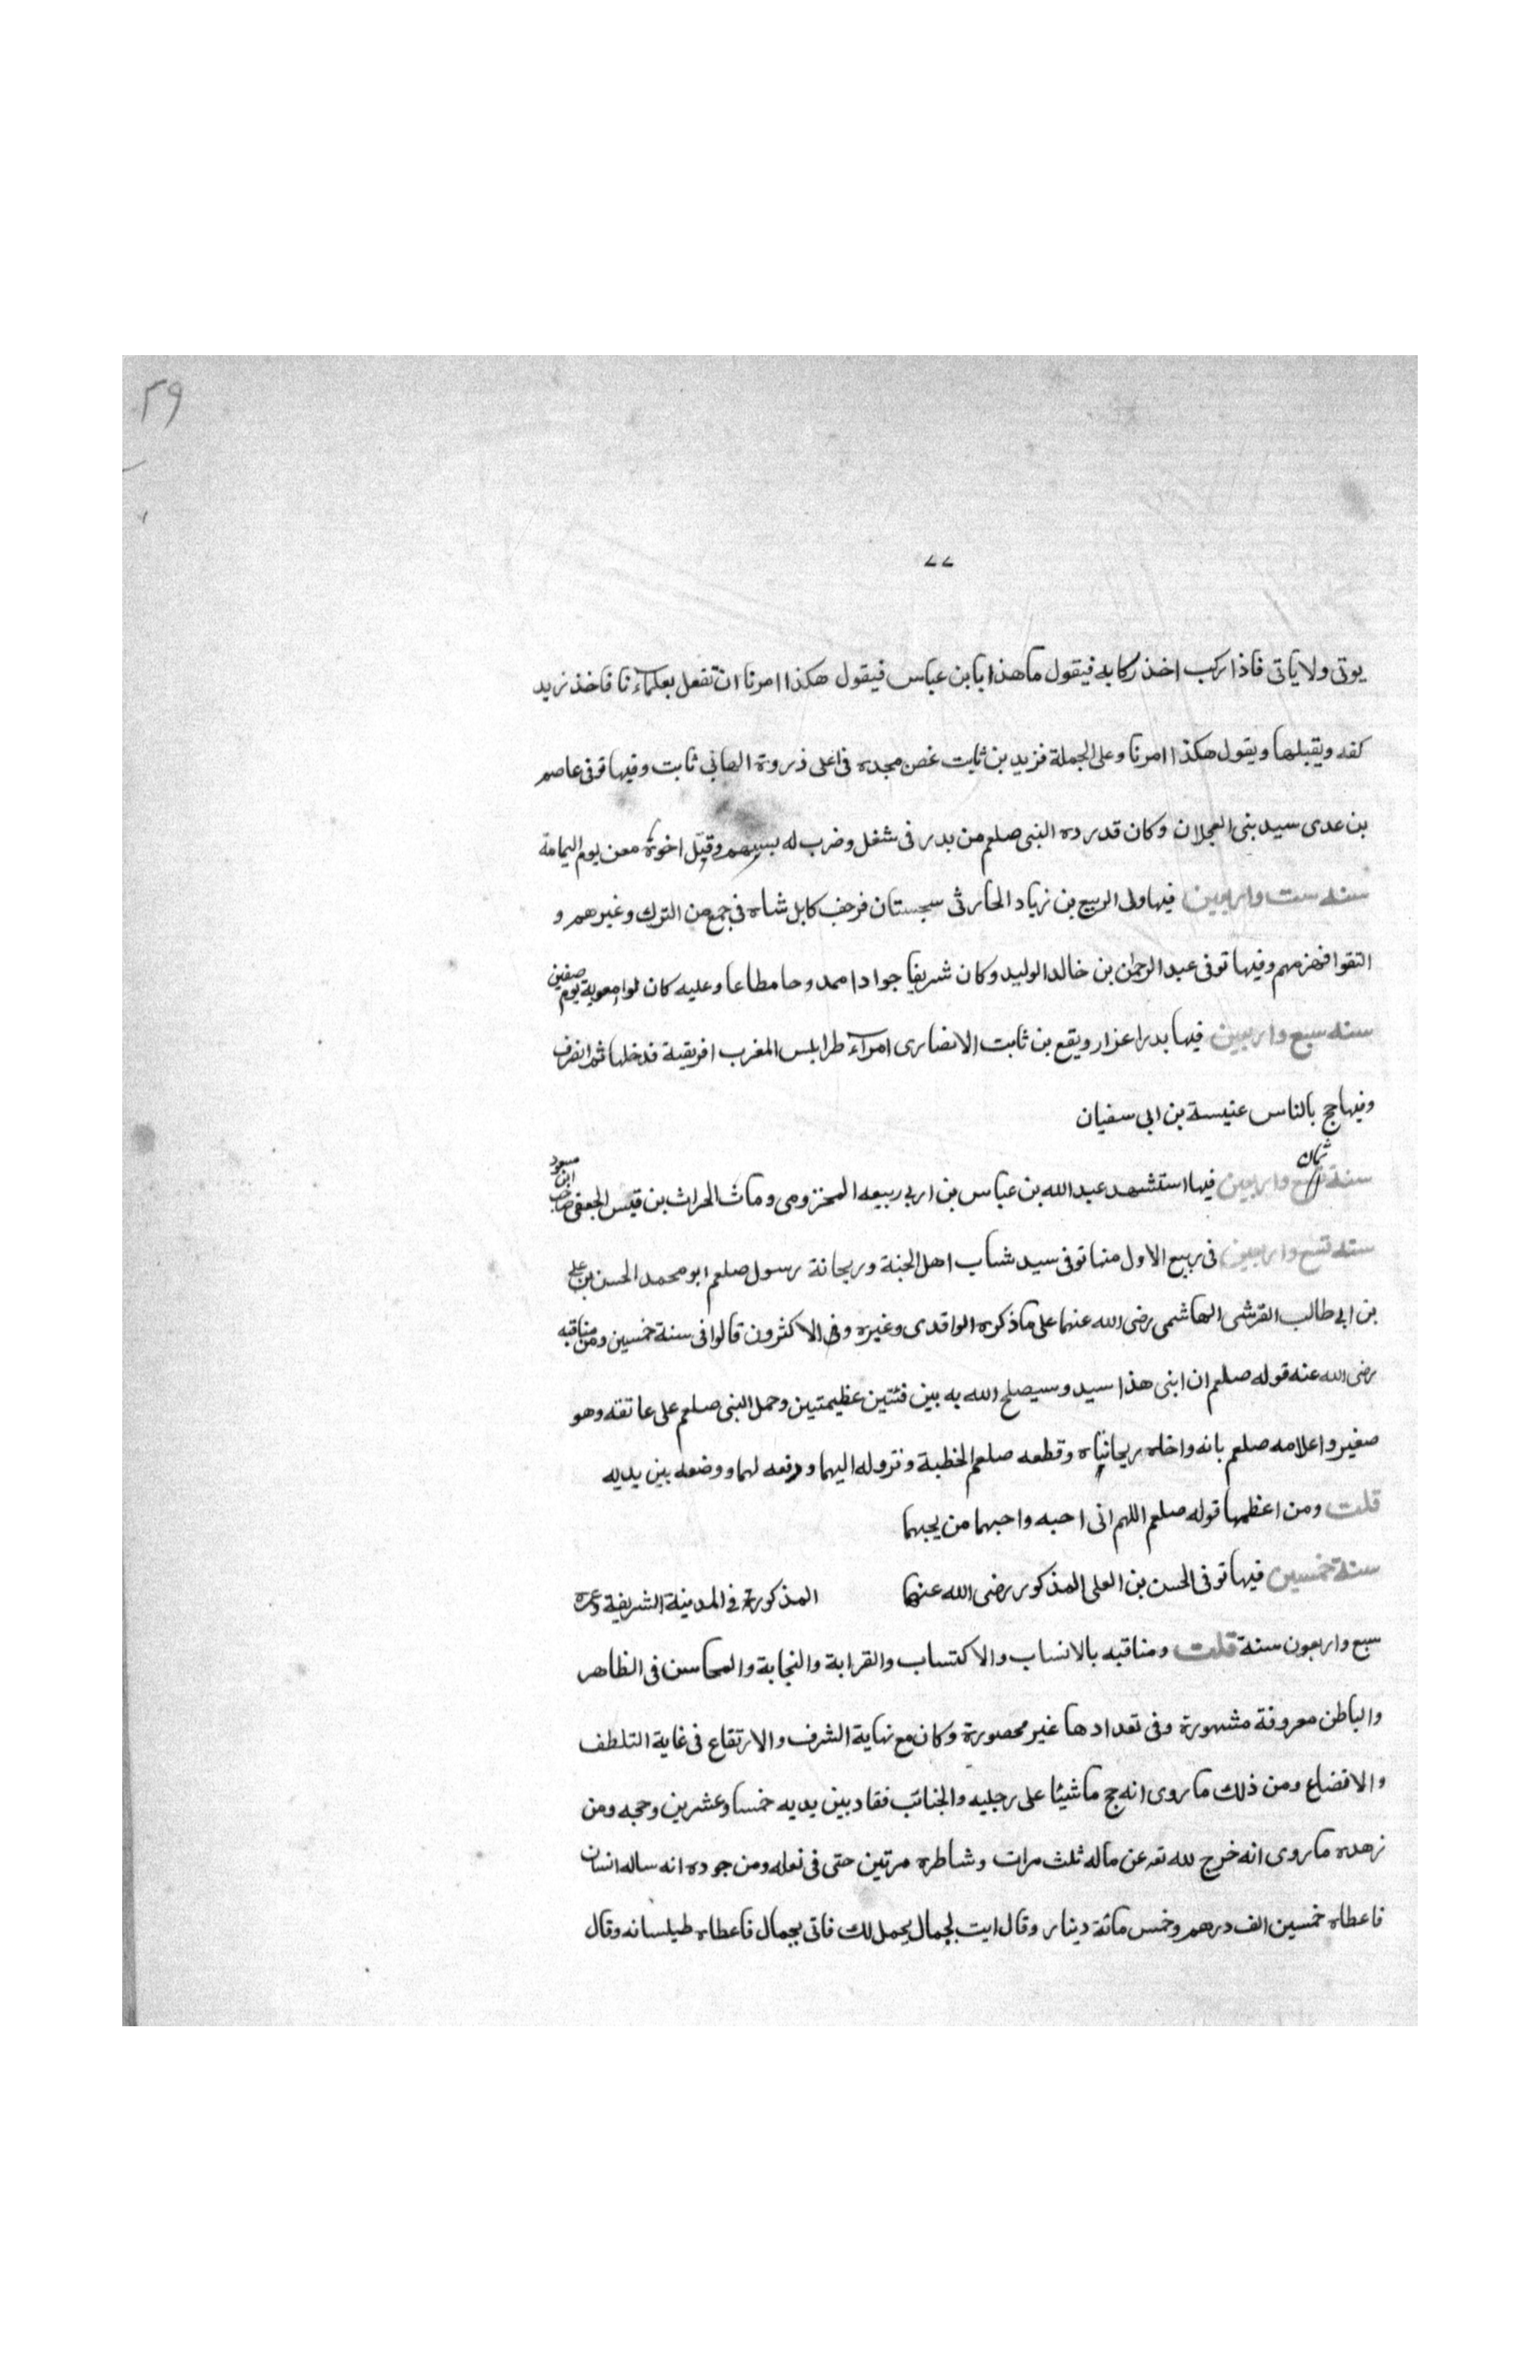 ٣٩
٧٧
يوتى ولا ياتى فاذا ركب اخذ ركابه فيقول ما هذا يا بن عباس فيقول هكذا امرنا ان نفعل بعلماءنا فاخذ زيد
كفه ويقبلها ويقول هكذا امرنا وعلى الجملة فزيد بن ثابت غصن مجده فى اعلى ذروة المعانى ثابت وفيها توفى عاصم
بن عدى سيد بنى العجلان وكان قد رده النبى صلعم من بدر فى شغل وضرب له بسهم وقتل اخوه معن يوم اليمامة
سنه ست واربعين فيها ولى الربيع بن زياد الحارثى سجستان فزحف كابل شاه فى جمع من الترك وغيرهم و
التقوا فهزمهم وفيها توفى عبد الرحمن بن خالد الوليد وكان شريفا جوادا ممدوحا مطاعا وعليه كان لوا معوية يوم صفين
سنه سبع واربعين فيها بدر اعزار ويقع بن ثابت الانصارى امراء طرابلس المغرب افريقية فدخلها ثم انصرف
وفيها حج بالناس عنبسة بن ابى سفيان
سنة ثمان واربعين فيها استشهد عبد الله بن عباس بن ابى ربيعه المخزومى ومات الحراث بن قيس الجعفى صاحب ابن مسعود
سنه تسع واربعين فى ربيع الاول منها توفى سيد شباب اهل الجنة وريحانة رسول صلعم ابو محمد الحسن بن على
بن ابى طالب القرشى الهاشمى رضى الله عنهما على ما ذكره الواقدى وغيره وفى الاكثرون قالوا فى سنة خمسين ومن مناقبه
رضى الله عنه قوله صلعم ان ابنى هذا سيد وسيصلح الله به بين فئتين عظيمتين وحمل النبى صلعم على عاتقه وهو
صغير واعلامه صلعم بانه واخاه ريحانتاه وقطعه صلعم الخطبة ونزوله اليهما ورفعه لهما ووضعه بين يديه
قلت ومن اعظمها قوله صلعم اللهم انى احبه واحبهما من يحبهما
سنة خمسين فيها توفى الحسن بن العلى المذكور رضى الله عنهما المذكورة فى المدينة الشريفة وعمره
سبع واربعون سنة قلت ومناقبه بالانساب والاكتساب والقرابة والنجابة والمحاسن فى الظاهر
والباطن معروفة مشهورة وفى تعدادها غير محصورة وكان مع نهاية الشرف والارتقاع فى غاية التلطف
والاقضاع ومن ذلك ما روى انه حج ماشيا على رجليه والجنائب فقاد بين يديه خمسا وعشرين وحجه ومن
زهده ما روى انه خرج لله تعه عن ماله ثلث مرات وشاطره مرتين حتى فى نعله ومن جوده انه ساله انسان
فاعطاه خمسين الف درهم وخمس مائة دينار وقال ايت بجمال يحمل لك فاتى بجمال فاعطاه طيلسانه وقال